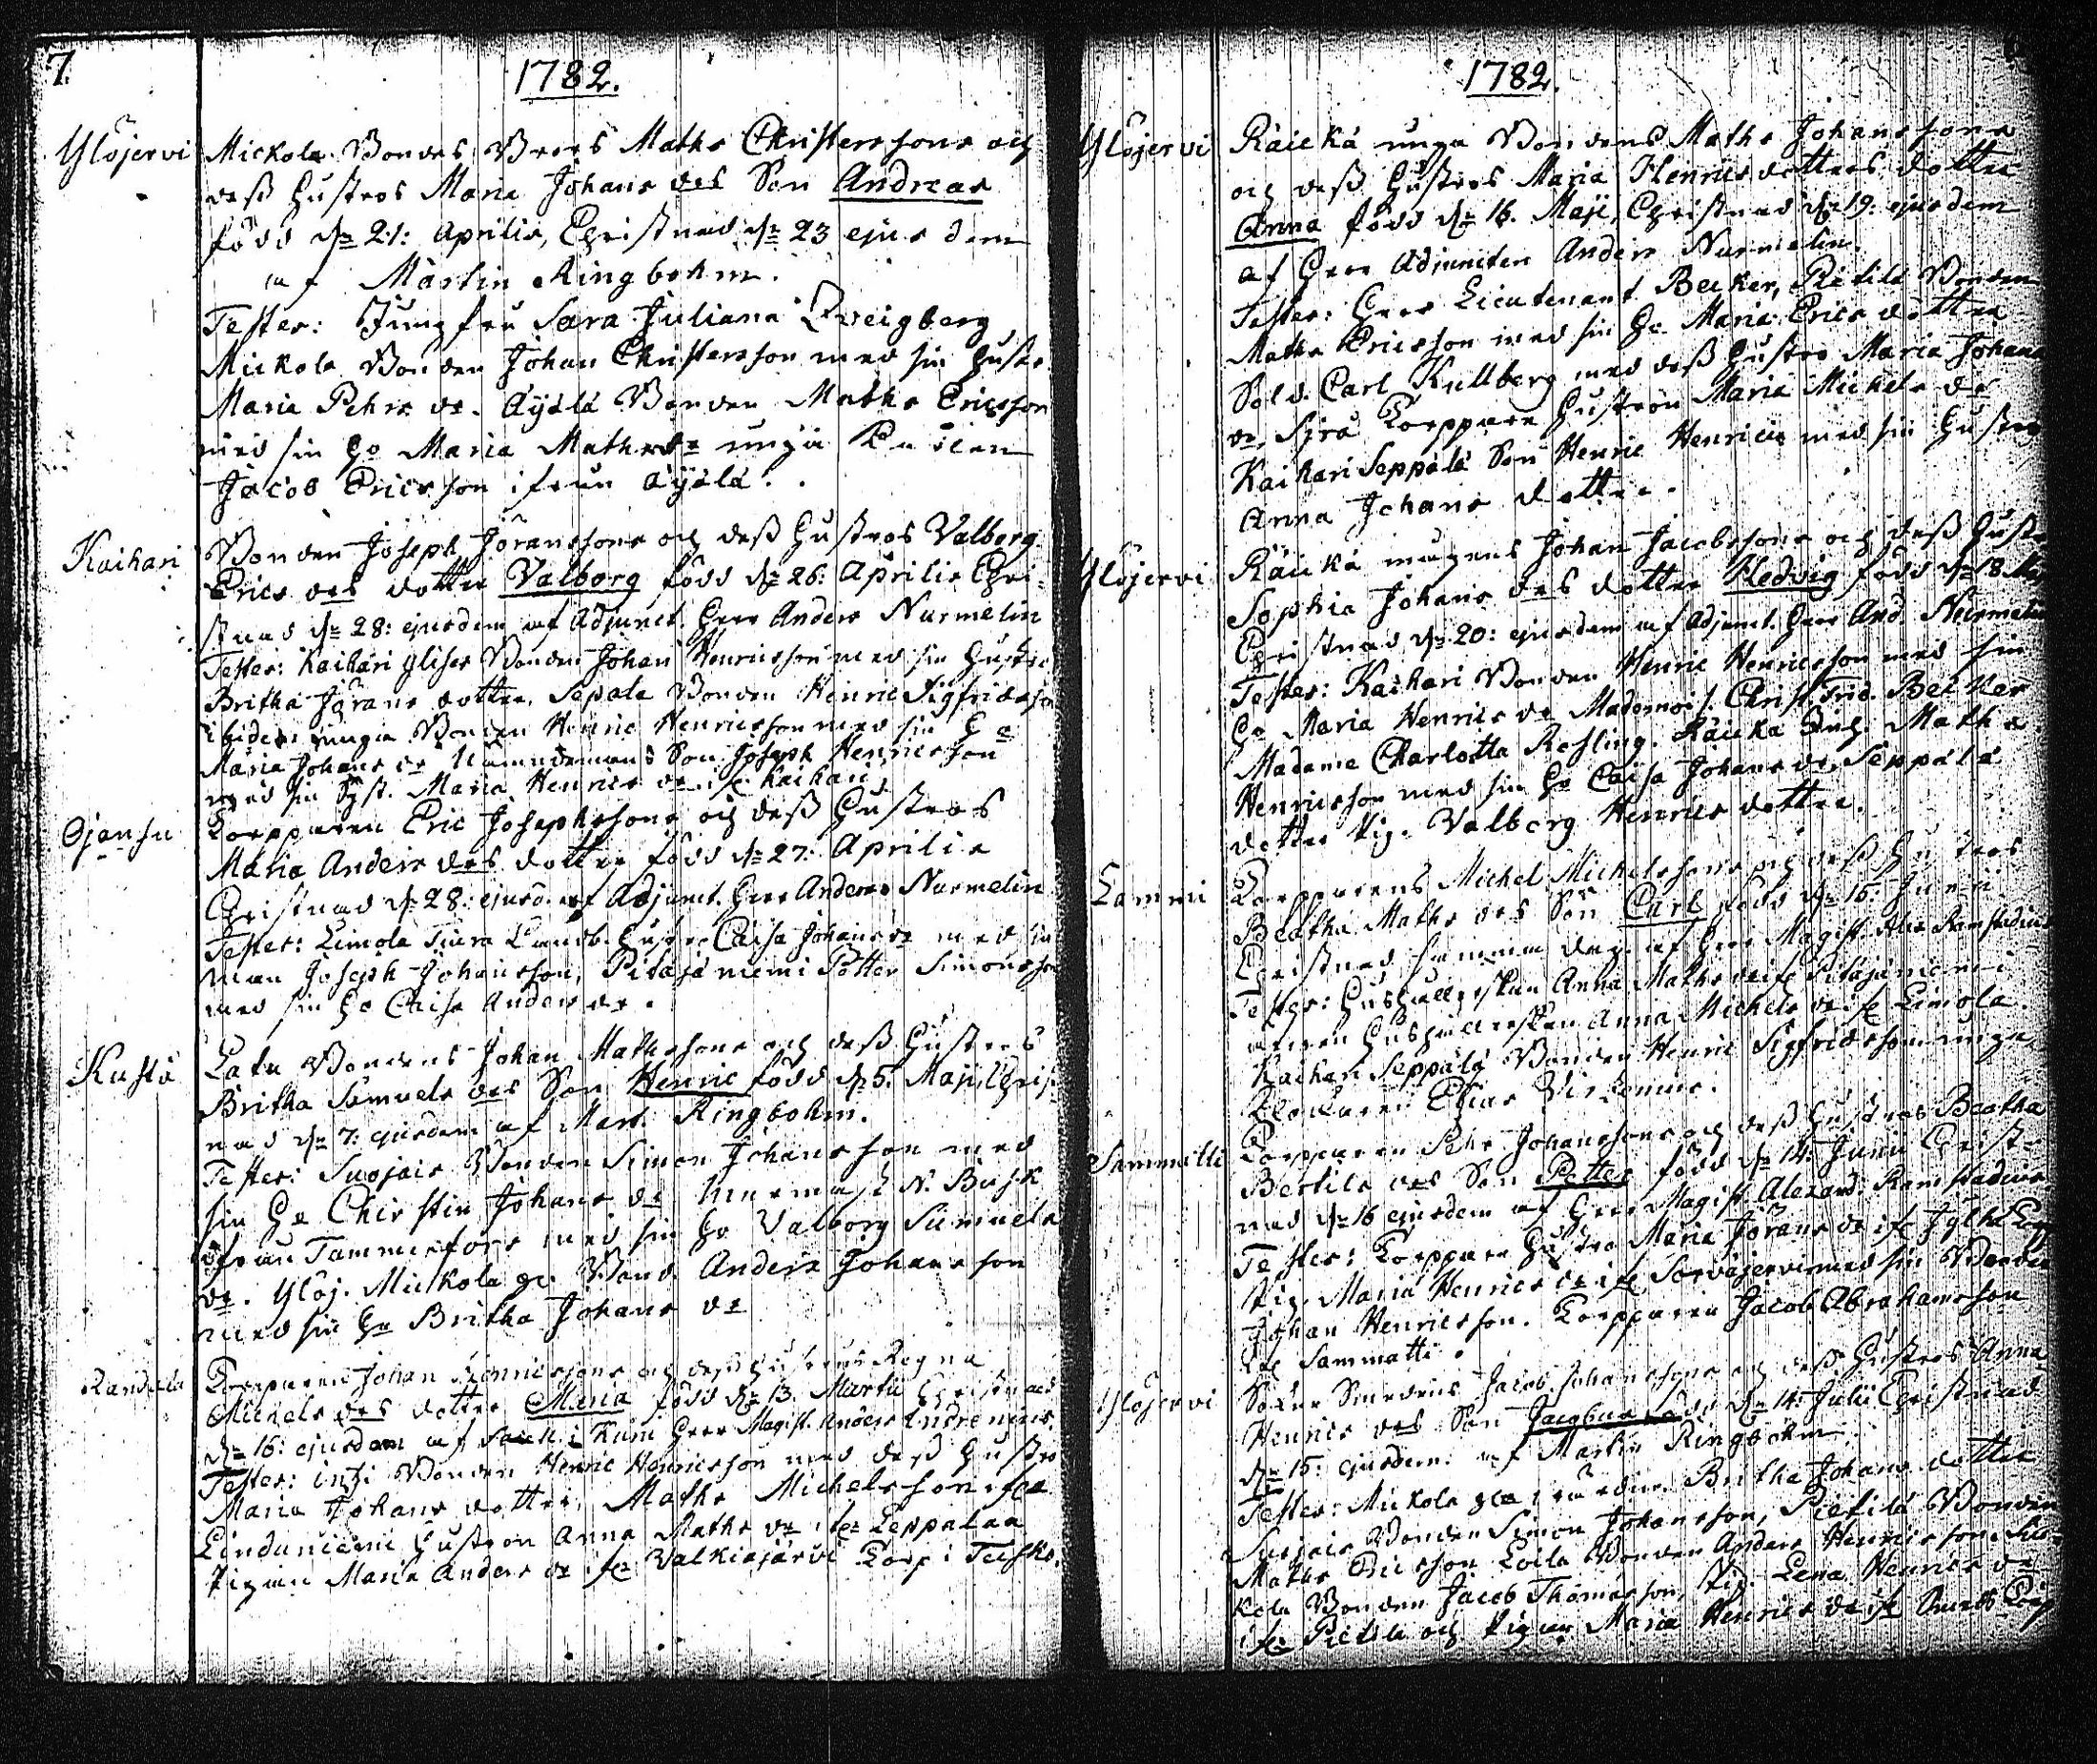 7.
1782.
Ylöjervi
Mickola Bondes Brors Maths Christerssons och
dess Hustros Maria Johans des Son Andreas
född dn 21: Aprilis, Christnad dn 23 ejusdem
af Martin Ringbohm.
Testes: Jungfru Sara Juliana Qveigberg
Mickola Bonden Johan Christersson med sin Hustr.
Maria Pehrs dr. Äÿälä Bonden Maths Ericsson
med sin Ho Maria Maths dr unga
Jacob Ericsson ifrån Äÿälä.
Kaihari
Bonden Joseph Jöranssons och dess Hustros Valborg
Erics des dotter Valborg född dn 26: Aprilis Chri-
stnad dn 28: ejusdem af Adjunct. Herr Anders Nurmelin
Testes: Kaihari Bonden Johan Henricsson med sin Hustro
Britha Jörans dotter, Sepale Bonden Henric Sigfridsson
ibidem unga Bonden Henric Henricsson med sin Ho
Maria Johans dr Nämndemans Son Joseph Henricsson
med sin Syst. Maria Henrics dr if: Kaihari
Ojansu
Torpparen Eric Josephssons och dess Hustros
Maria Anders des dotter född dn 27: Aprilis
Christnad dn 28: ejusd. af Adjunct. Herr Anders Nurmelin
Testes: Limola Hustr. Caisa Johans dr med sin
man Joseph Johansson, Pitäjäniemi Petter Simonsson
med sin Ho Caisa Anders dr.
Kustö
Latu Bondens Johan Mathssons och dess Hustros
Britha Samuels des Son Henric född d. 5. Maji, Christ-
nad dn 7: ejusdem af Mart. Ringbohm.
Testes: Suojais Bonden Simon Johansson med
sin Ho Chirstin Johans dr N. Busk
ifrån Tammerfors med sin Ho Valborg Samuels
dr. Ylöj. Mickola Bond. Anders Johansson
med sin Ho Britha Johans dr
Torparen Johan Henricssons och dess Hustrus Regna
Michels des dotter Maria född dn 13. Martii Christnad
dn 16: ejusdem af Herr Magist. Anders
Testes: Bonden Henric Henricsson med dess Hustro
Maria Johans dotter, Maths Michelsson ifrå
Linduniemi Hustron Anna Maths dr ifr Leppalax
Pigan Maria Anders dr ifr Valkiajärvi Torp i Teisko.
1782.
Ylöjervi
Räickä unga Bondens Maths Johanssons
och dess Hustros Maria Henrics dotters dotter
Anna född dn 16. Maji, Christnad dn 19: ejusdem
af Herr Adjuncten Anders Nurmelin.
Testes: Herr Lieutenant Becker, Pietilä Bonden
Maths Ericsson med sin Ho Maria Erics dotter
Sold. Carl Kullberg med dess Hustro Maria Johans
dr, Torppare Hustron Maria Michels dr
Kaihari Seppälä Son Henric Henrics med sin Hustro
Anna Johans dotter.
Ylöjervi
Räickä mågens Johan Jacobssons och dess Hustr.
Sophia Johans des dotter Hedvig född dn 18
Christnad dn 20: ejusdem af Adjunct. Herr And. Nurmelin
Testes: Kaihari Bonden Henric Henricsson med sin
Ho Maria Henrics dr Mademois. Christ. Frid. Becker
Madame Charlotta Rosling. Räickä Maths
Henricsson med sin Ho Caisa Johans dr, Seppälä
dotter Pig. Valborg Henrics dotter.
Lammi
Torpparens Michel Michelssons och dess Hustros
Beatha Maths des Son Carl född dn 15: Junii
Christnad samma dag af Herr Magist. Alex Ramstadius
Testes: Hushållerskan Anna Maths dr ifr Pitäjäniemi
Hushållerskan Anna Michels dr ifr Limola
Kaihari Seppälä Bonden Henric Sigfridsson unga
Klockaren Elias Virzenius.
Sammatti
Torpparen Pehr Johanssons och dess Hustros Beatha
Bertils des Son Petter född dn 14: Junii Christ-
nad dn 16 ejusdem af Herr Magist. Alexand. Ramstadius
Testes: Torppare Hustro Maria Jörans dr ifr
Pig. Maria Henrics dr ifr Sorvajervi med sin Broder
Johan Henricsson. Torpparen Jacob Abrahamsson
ifr Sammatti.
Ylöjervi
Sockne Smedens Jacob Johanssons och dess Hustros Anna
Henrics des Son Jacobus född dn 14: Julii Christnad
dn 15: ejusdem: af Martin Ringbohm
Testes: Mickola Britha Johans dotter
Suojais Bonden Simon Johansson, Pietilä Bonden
Maths Ericsson Loila Bonden Anders Henricsson
kola Bonden Jacob Thomasson, Pig. Lena Henrics dr
ifr Pietilä och Pigan Maria Henrics dr ifr Torp